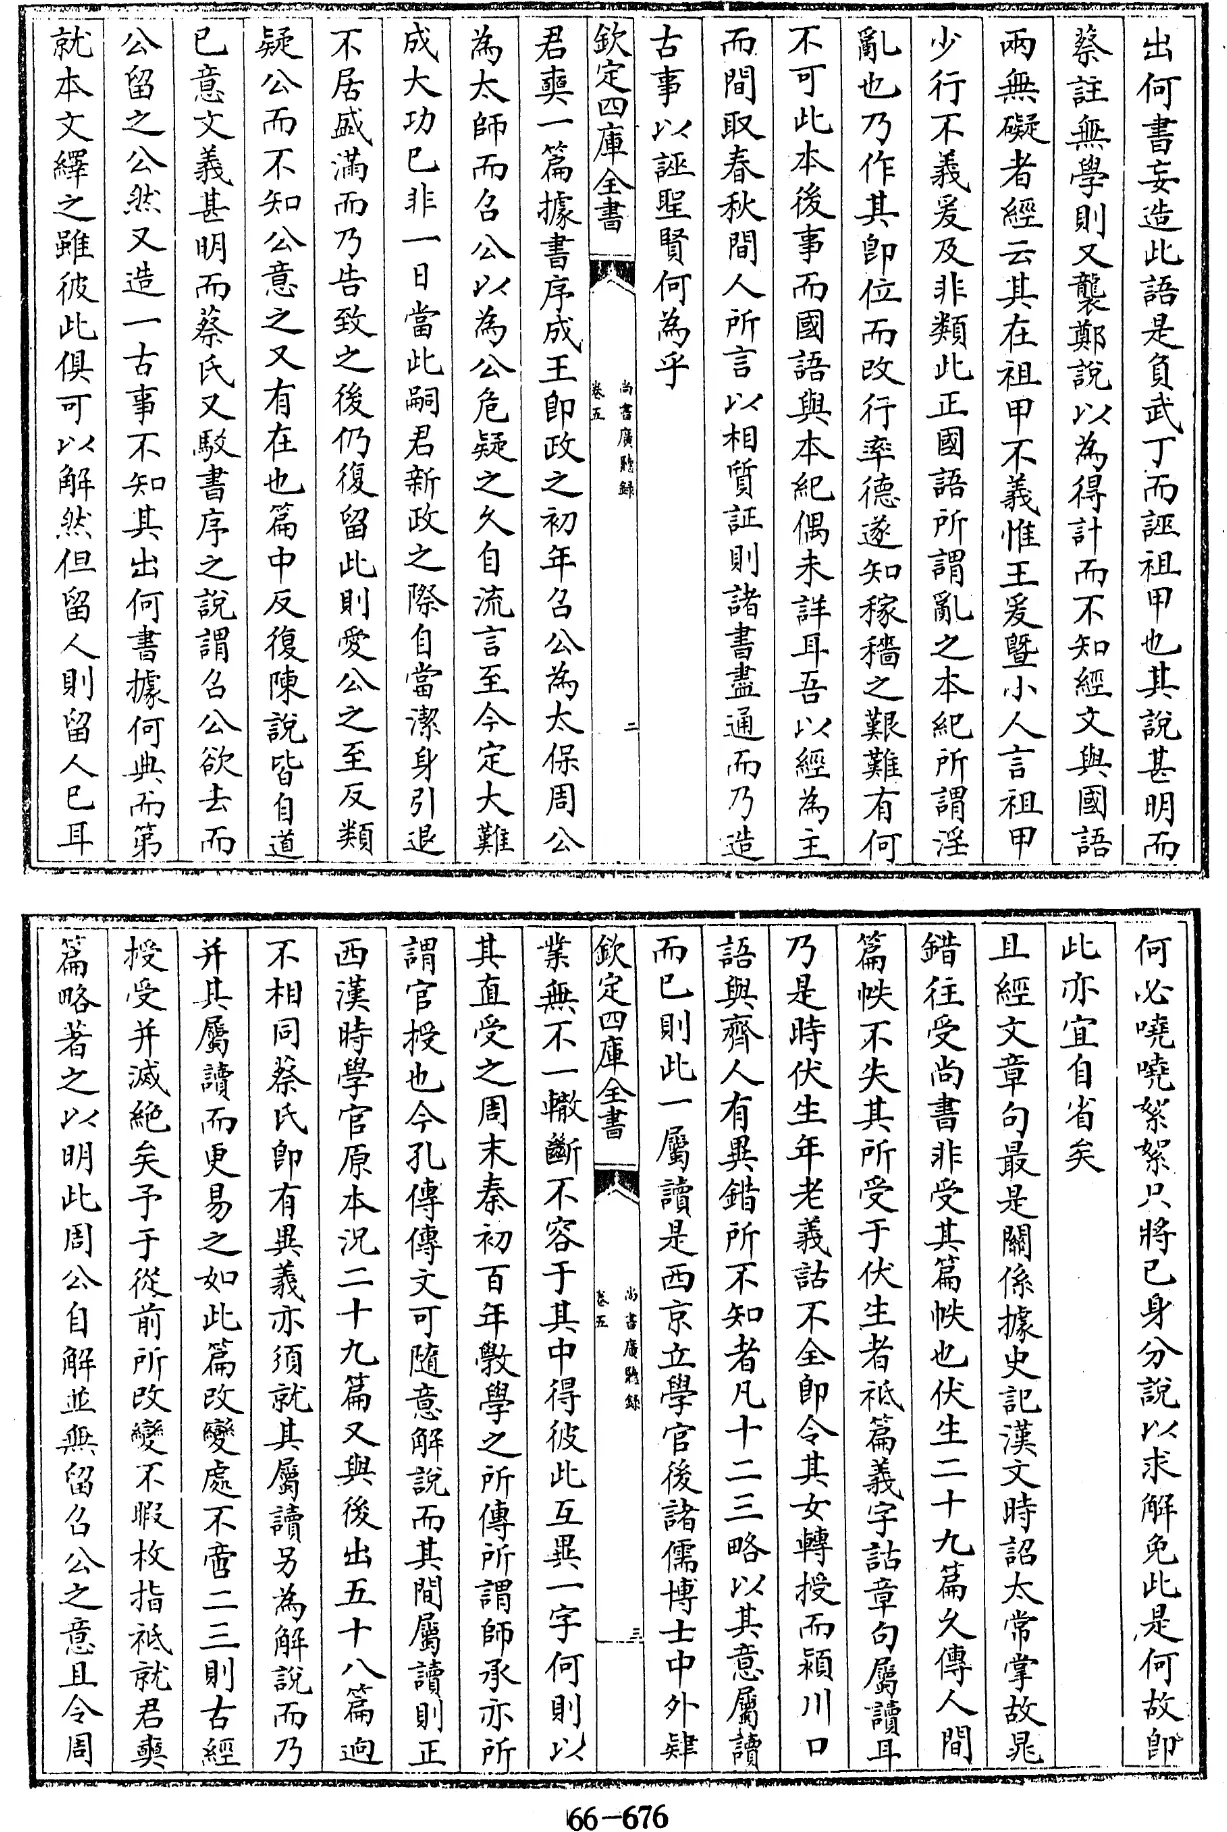 出何書妄造此語是負武丁而誣祖甲也其説甚明而
蔡註無學則又襲鄭説以為得計而不知經文與國語
兩無礙者經云其在祖甲不義惟王爰曁小人言祖甲
少行不義爰及非類此正國語所謂亂之本紀所謂淫
亂也乃作其卽位而改行率德遂知稼穡之艱難有何
不可此本後事而國語與本紀偶未詳耳吾以經為主
而間取春秋間人所言以相質証則諸書盡通而乃造
古事以誣聖賢何為乎
欽定四庫全書
尚書廣聽録
卷五
二
君奭一篇據書序成王卽政之初年召公為太保周公
為太師而召公以為公危疑之久自流言至今定大難
成大功已非一日當此嗣君新政之際自當潔身引退
不居盛滿而乃告致之後仍復留此則愛公之至反類
疑公而不知公意之又有在也篇中反復陳説皆自道
已意文義甚明而蔡氏又駁書序之説謂召公欲去而
公留之公然又造一古事不知其出何書據何典而第
就本文繹之雖彼此俱可以解然但留人則留人已耳
何必嘵嘵絮絮只將已身分説以求解免此是何故卽
此亦宜自省矣
且經文章句最是關係據史記漢文時詔太常掌故晁
錯往受尚書非受其篇帙也伏生二十九篇久傳人間
篇帙不失其所受于伏生者祗篇義字詁章句屬讀耳
乃是時伏生年老義詁不全卽令其女轉授而潁川口
語與齊人有異錯所不知者凡十二三略以其意屬讀
而已則此一屬讀是西京立學官後諸儒博士中外肄
欽定四庫全書
尚書廣聽録
卷五
三
業無不一轍斷不容于其中得彼此互異一字何則以
其直受之周末秦初百年斅學之所傳所謂師承亦所
謂官授也今孔傳傳文可隨意解説而其間屬讀則正
西漢時學官原本況二十九篇又與後出五十八篇逈
不相同蔡氏卽有異義亦須就其屬讀另為解説而乃
并其屬讀而更易之如此篇改變處不啻二三則古經
授受并滅絶矣予于從前所改變不暇枚指祗就君奭
篇略著之以明此周公自解並無留召公之意且令周
66-676